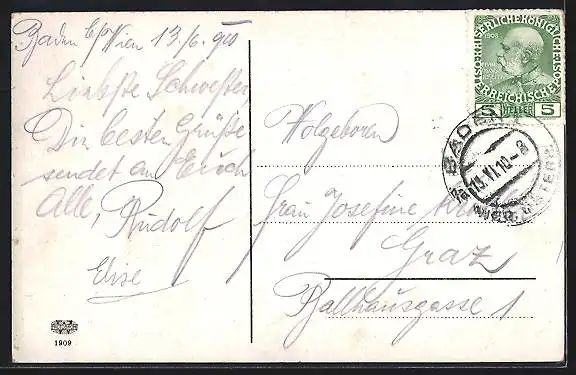 Baden b/Wien 13./6. 910
Liebste Schwester,
Die besten Grüße
sendet an Euch
Alle, Rudolf
Elise
1909
Wolgeboren
Frau Josefine
Graz
Ballhausgasse 1
KAISERLICHE KÖNIGLICHE
ÖSTERREICHISCHE
1908
5 HELLER 5
BADEN
13.VI.10-8
7a